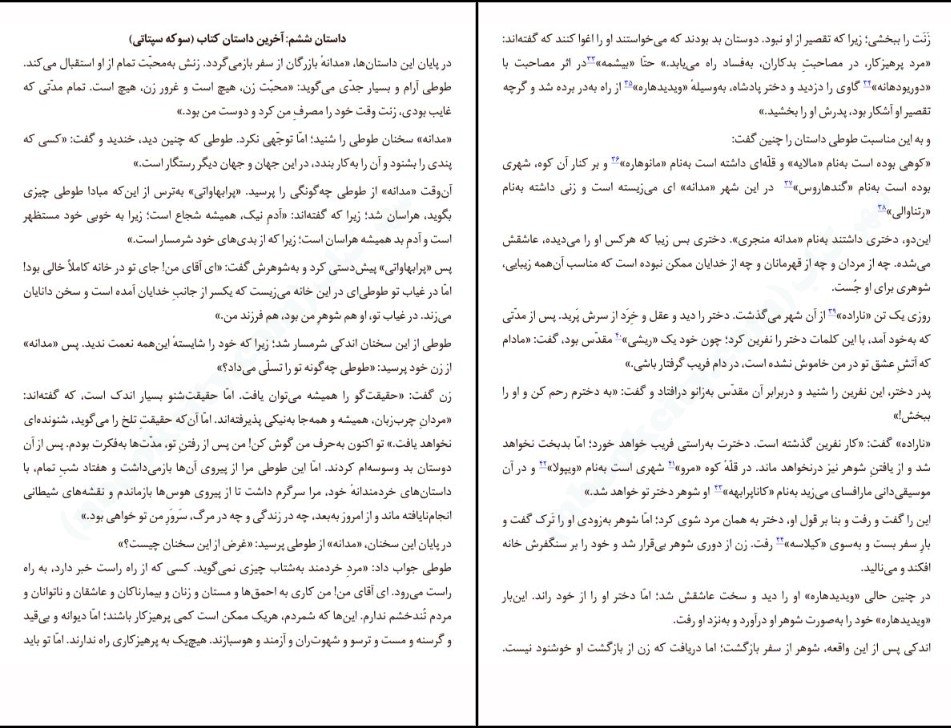 داستان ششم: آخرین داستان کتاب (سوکه سپتاتی)
در پایان این داستان‌ها، «مدانهٔ بازرگان از سفر بازمی‌گردد. زنش به‌محبّت تمام از او استقبال می‌کند.
طوطی آرام و بسیار جدّی می‌گوید: «محبّت زن، هیچ است و غرور زن، هیچ است. تمام مدّتی که
غایب بودی، زنت وقت خود را مصرفِ من کرد و دوست من بود.»
«مدانه» سخنان طوطی را شنید؛ امّا توجّهی نکرد. طوطی که چنین دید، خندید و گفت: «کسی که
پندی را بشنود و آن را به‌کار بندد، در این جهان و جهان دیگر رستگار است.»
آن‌وقت «مدانه» از طوطی چه‌گونگی را پرسید. «پرابهاواتی» به‌ترس از این‌که مبادا طوطی چیزی
بگوید، هراسان شد؛ زیرا که گفته‌اند: «آدمِ نیک، همیشه شجاع است؛ زیرا به خوبی خود مستظهر
است و آدم بد همیشه هراسان است؛ زیرا که از بدی‌های خود شرمسار است.»
پس «پرابهاواتی» پیش‌دستی کرد و به‌شوهرش گفت: «ای آقای من! جای تو در خانه کاملاً خالی بود!
امّا در غیاب تو طوطی‌ای در این خانه می‌زیست که یکسر از جانبِ خدایان آمده است و سخن دانایان
می‌زند. در غیاب تو، او هم شوهرِ من بود، هم فرزند من.»
طوطی از این سخنان اندکی شرمسار شد؛ زیرا که خود را شایستهٔ این‌همه نعمت ندید. پس «مدانه»
از زن خود پرسید: «طوطی چه‌گونه تو را تسلّی می‌داد؟»
زن گفت: «حقیقت‌گو را همیشه می‌توان یافت. امّا حقیقت‌شنو بسیار اندک است، که گفته‌اند:
«مردانِ چرب‌زبان، همیشه و همه‌جا به‌نیکی پذیرفته‌اند. امّا آن‌که حقیقتِ تلخ را می‌گوید، شنونده‌ای
نخواهد یافت.» تو اکنون به‌حرف من گوش کن! من پس از رفتنِ تو، مدّت‌ها به‌فکرت بودم. پس از آن
دوستان بد وسوسه‌ام کردند. امّا این طوطی مرا از پیروی آن‌ها بازمی‌داشت و هفتاد شبِ تمام، با
داستان‌های خردمندانهٔ خود، مرا سرگرم داشت تا از پیروی هوس‌ها بازماندم و نقشه‌های شیطانی
انجام‌نایافته ماند و از امروز به‌بعد، چه در زندگی و چه در مرگ، سَروَرِ من تو خواهی بود.»
در پایان این سخنان، «مدانه» از طوطی پرسید: «غرض از این سخنان چیست؟»
طوطی جواب داد: «مردِ خردمند به‌شتاب چیزی نمی‌گوید. کسی که از راه راست خبر دارد، به راه
راست می‌رود. ای آقای من! من کاری به احمق‌ها و مستان و زنان و بیمارناکان و عاشقان و ناتوانان و
مردم تُندخشم ندارم. این‌ها که شمردم، هریک ممکن است کمی پرهیزکار باشند؛ امّا دیوانه و بی‌قید
و گرسنه و مست و ترسو و شهوت‌ران و آزمند و هوسبازند. هیچ‌یک به پرهیزکاری راه ندارند. امّا تو باید
زَنَت را ببخشی؛ زیرا که تقصیر از او نبود. دوستان بد بودند که می‌خواستند او را اغوا کنند که گفته‌اند:
«مرد پرهیزکار، در مصاحبتِ بدکاران، به‌فساد راه می‌یابد.» حتّا «بیشمه»۳۳در اثر مصاحبت با
«دوریودهانه»۳۴ گاوی را دزدید و دختر پادشاه، به‌وسیلهٔ «ویدیدهاره»۳۵ از راه به‌در برده شد و گرچه
تقصیر او آشکار بود، پدرش او را بخشید.»
و به این مناسبت طوطی داستان را چنین گفت:
«کوهی بوده است به‌نام «مالایه» و قلّه‌ای داشته است به‌نام «مانوهاره»۳۶ و بر کنار آن کوه، شهری
بوده است به‌نام «گندهاروس»۳۷ در این شهر «مدانه» ای می‌زیسته است و زنی داشته به‌نام
«رتناوالی»۳۸
این‌دو، دختری داشتند به‌نام «مدانه منجری». دختری بس زیبا که هرکس او را می‌دیده، عاشقش
می‌شده. چه از مردان و چه از قهرمانان و چه از خدایان ممکن نبوده است که مناسب آن‌همه زیبایی،
شوهری برای او جُست.
روزی یک تن «ناراده»۳۹ از آن شهر می‌گذشت. دختر را دید و عقل و خِرَد از سرش پَرید. پس از مدّتی
که به‌خود آمد، با این کلمات دختر را نفرین کرد؛ چون خود یک «ریشی»۴۰ مقدّس بود، گفت: «مادام
که آتشِ عشق تو در من خاموش نشده است، در دام فریب گرفتار باشی.»
پدر دختر، این نفرین را شنید و دربرابر آن مقدّس به‌زانو درافتاد و گفت: «به دخترم رحم کن و او را
ببخش!»
«ناراده» گفت: «کار نفرین گذشته است. دخترت به‌راستی فریب خواهد خورد؛ امّا بدبخت نخواهد
شد و از یافتنِ شوهر نیز درنخواهد ماند. در قلّهٔ کوه «مرو»۴۱ شهری است به‌نام «ویپولا»۴۲ و در آن
موسیقی‌دانی مارافسای می‌زید به‌نام «کاناپرابهه»۴۳ او شوهر دختر تو خواهد شد.»
این را گفت و رفت و بنا بر قول او، دختر به همان مرد شوی کرد؛ امّا شوهر به‌زودی او را تَرک گفت و
بارِ سفر بست و به‌سوی «کیلاسه»۴۴ رفت. زن از دوری شوهر بی‌قرار شد و خود را بر سنگفرش خانه
افکند و می‌نالید.
در چنین حالی «ویدیدهاره» او را دید و سخت عاشقش شد؛ امّا دختر او را از خود راند. این‌بار
«ویدیدهاره» خود را به‌صورت شوهر او درآورد و به‌نزد او رفت.
اندکی پس از این واقعه، شوهر از سفر بازگشت؛ اما دریافت که زن از بازگشت او خوشنود نیست.